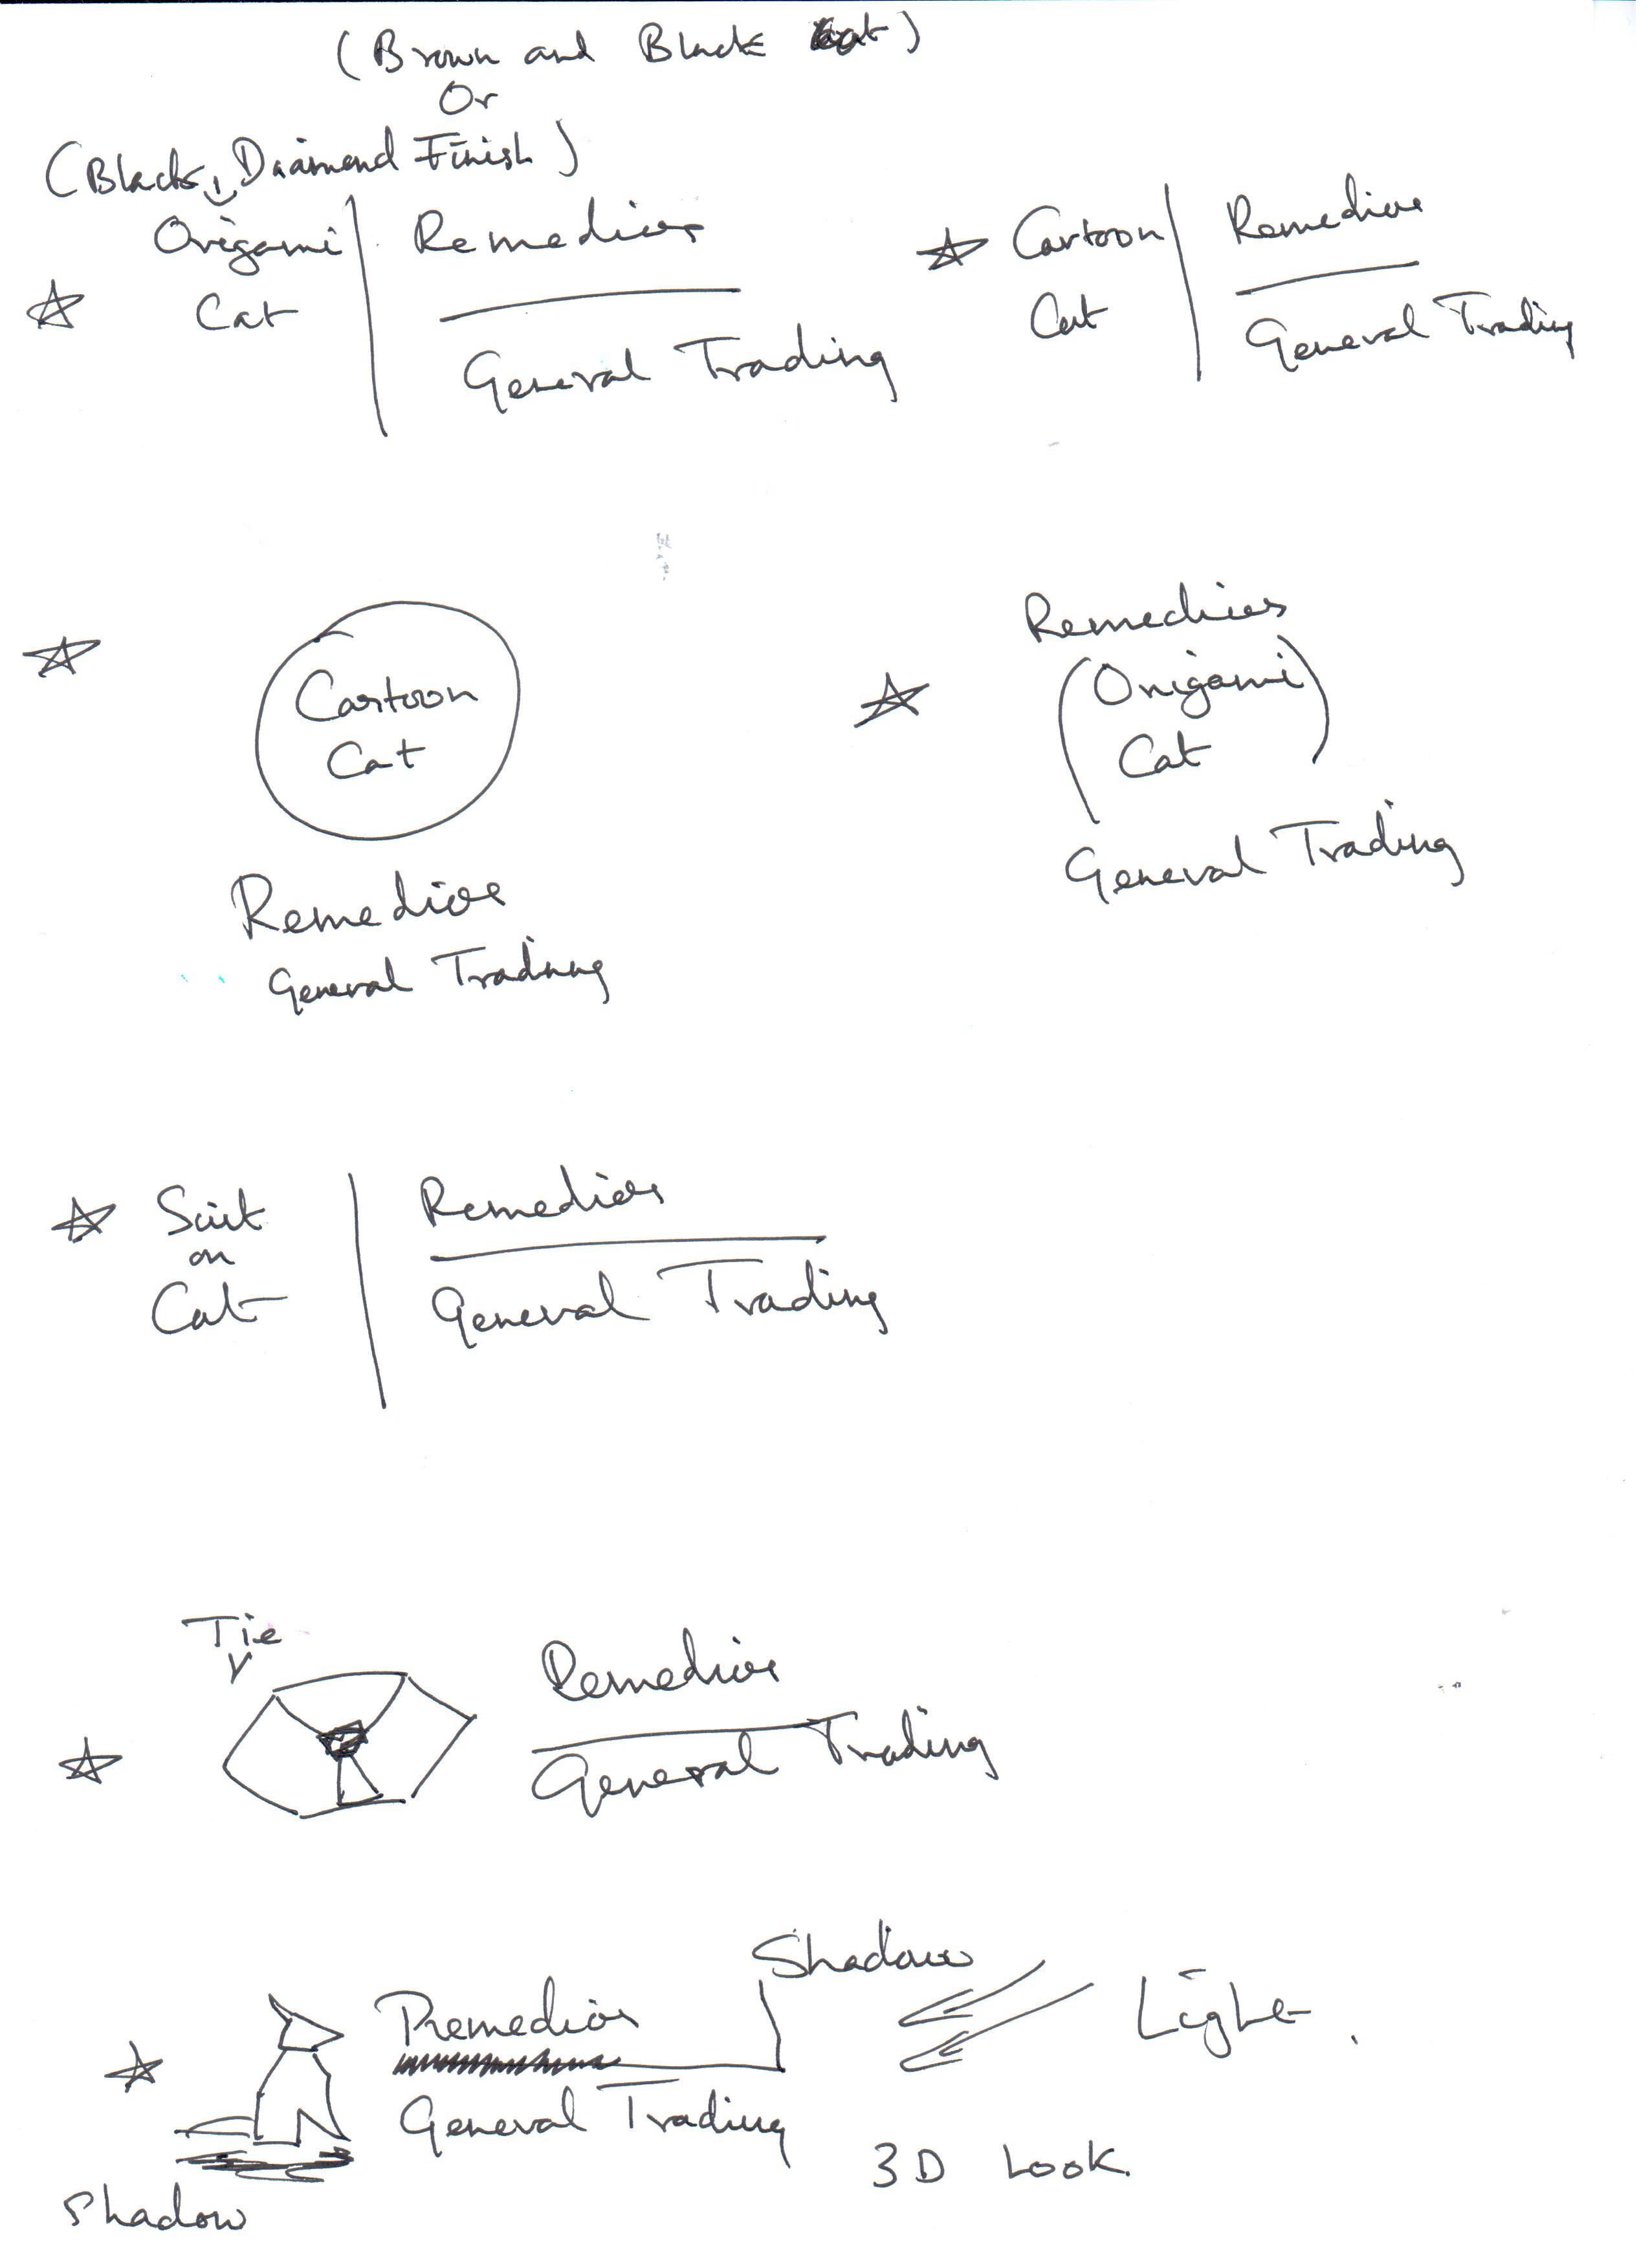 (Brown and Black Cat)
Or
(Black, Diamond Finish)
Origami
Cat
Remedios
General Trading
Cartoon
Cat
Remedios
General Trading
Cartoon
Cat
Remedios
General Trading
Remedios
(Origami)
Cat
General Trading
Suit
on
Cat
Remedios
General Trading
Tie
Remedios
General Trading
Shadow
Light
Remedios
General Trading
3D Look.
Shadow